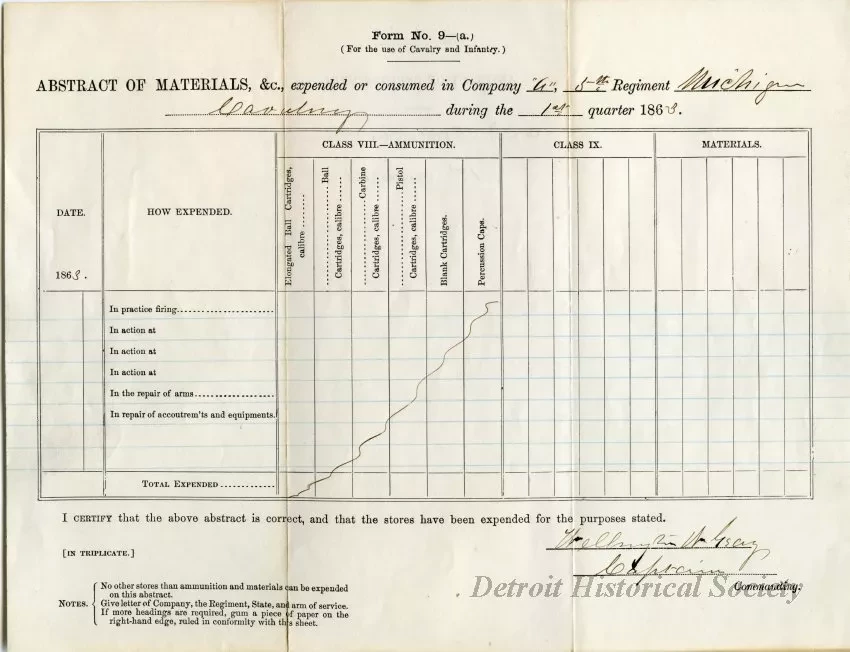 Form No. 9—(a.)
(For the use of Cavalry and Infantry.)
ABSTRACT OF MATERIALS, &c., expended or consumed in Company "G", 5th Regiment Michigan
Cavalry during the 1st quarter 1863.
DATE.
1863.
HOW EXPENDED.
CLASS VIII.—AMMUNITION.
CLASS IX.
MATERIALS.
Elongated Ball Cartridges, calibre ..........
..........Ball Cartridges, calibre ......
..........Carbine Cartridges, calibre ......
..........Pistol Cartridges, calibre ......
Blank Cartridges.
Percussion Caps.
In practice firing..........
In action at
In action at
In action at
In the repair of arms..........
In repair of accoutrem'ts and equipments.
TOTAL EXPENDED ..........
I CERTIFY that the above abstract is correct, and that the stores have been expended for the purposes stated.
[IN TRIPLICATE.]
Wellington W Gray
Captain
Commanding.
Detroit Historical Society
NOTES.
No other stores than ammunition and materials can be expended
on this abstract.
Give letter of Company, the Regiment, State, and arm of service.
If more headings are required, gum a piece of paper on the
right-hand edge, ruled in conformity with this sheet.